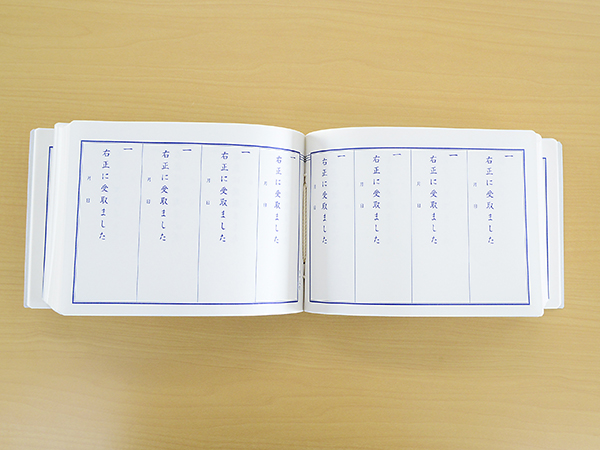 一
右正に受取ました
月 日
一
右正に受取ました
月 日
一
右正に受取ました
月 日
一
右正に受取ました
月 日
一
右正に受取ました
月 日
一
右正に受取ました
月 日
一
右正に受取ました
月 日
一
右正に受取ました
月 日